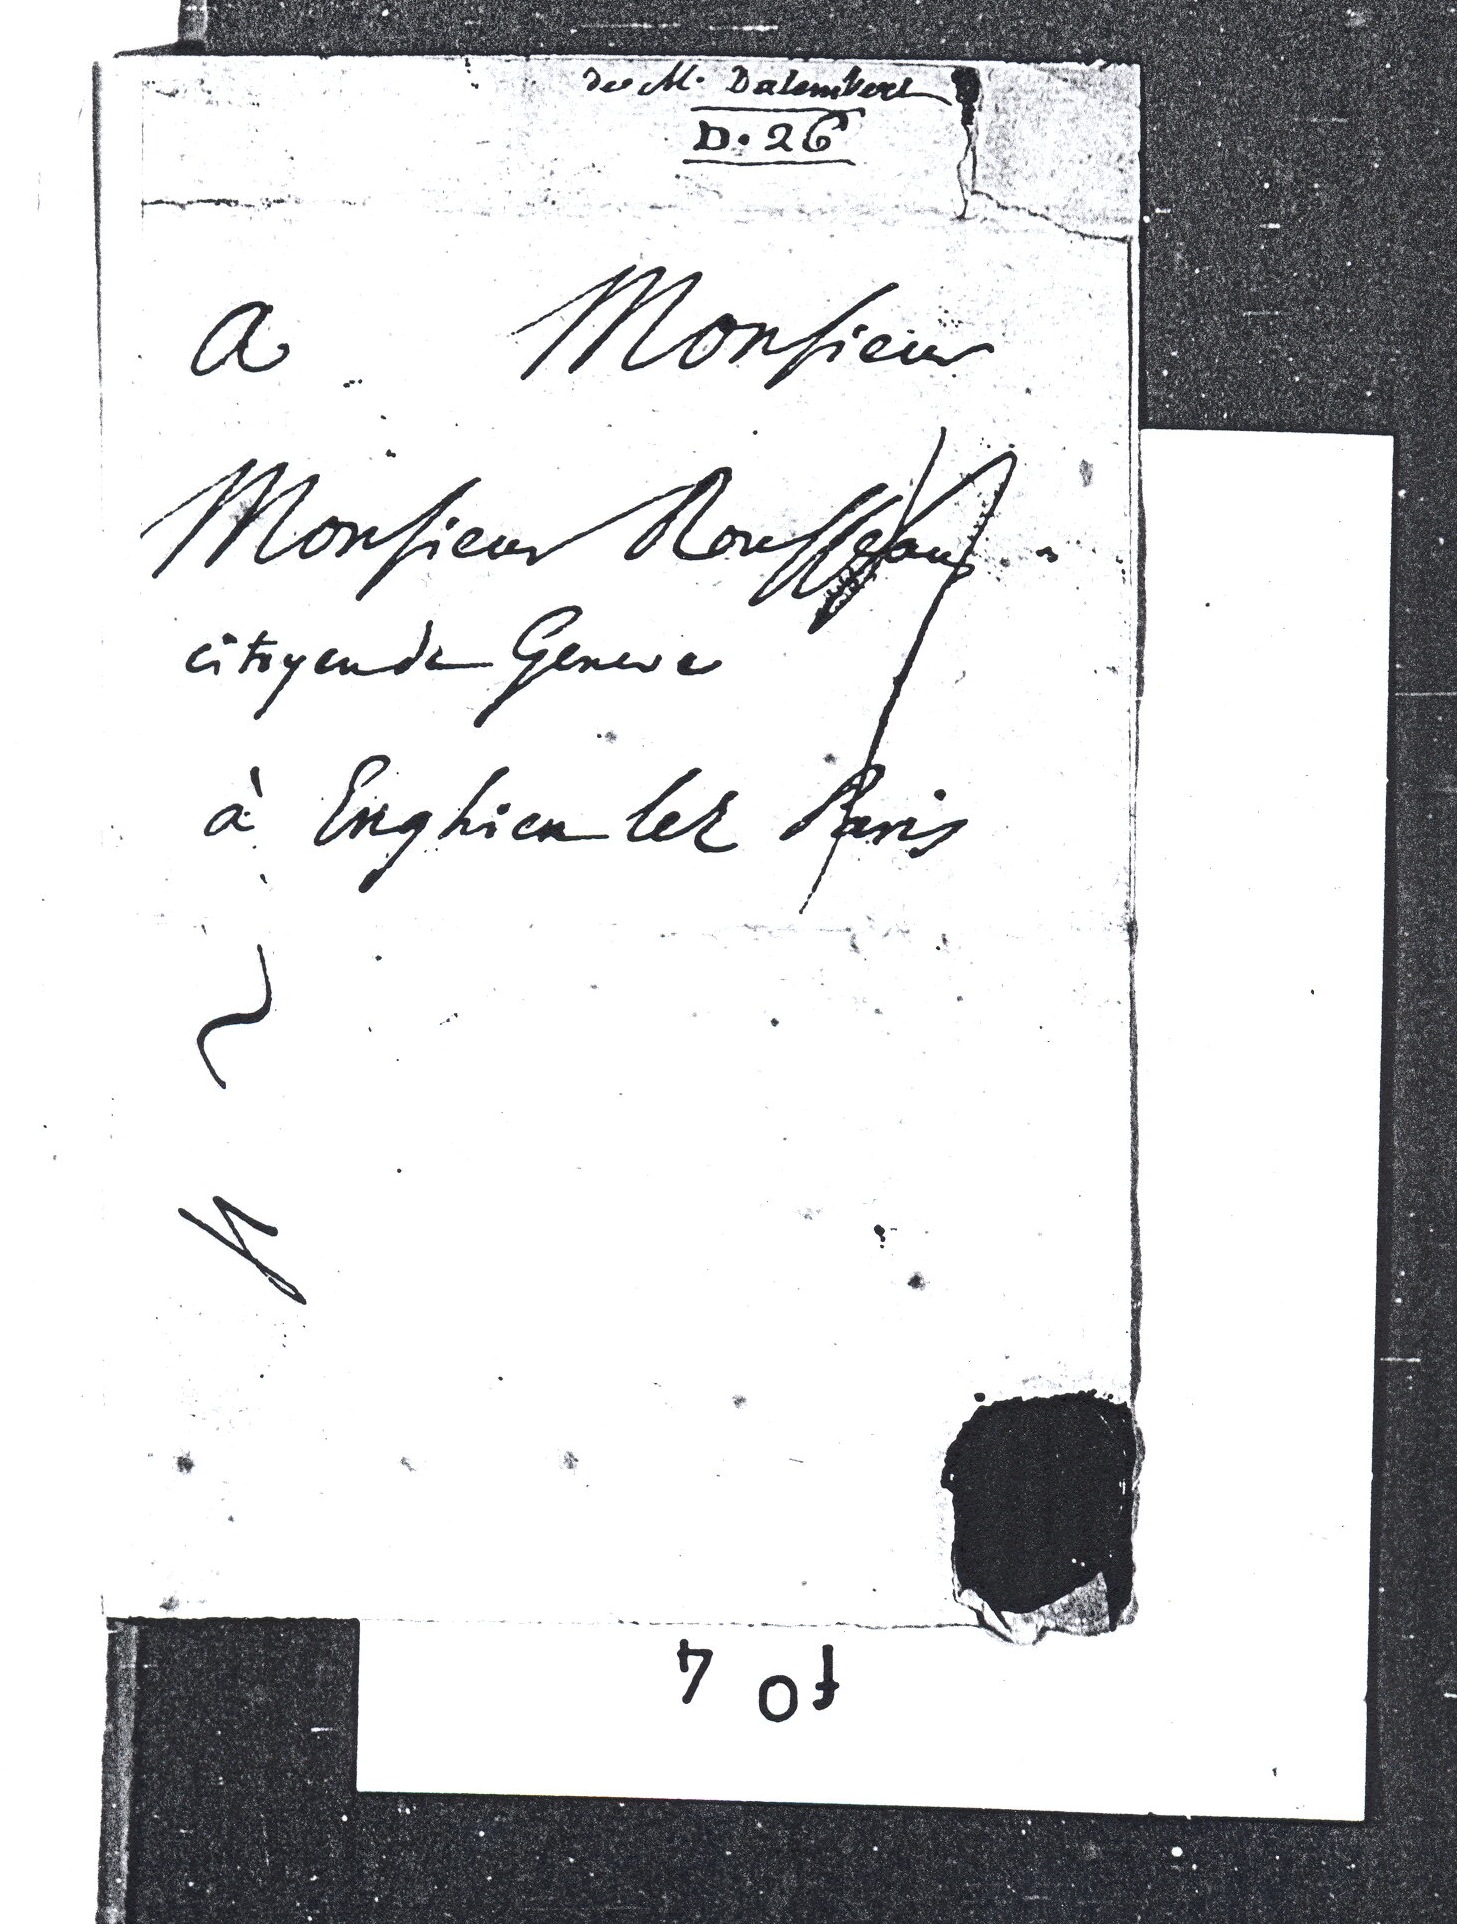 de M. Dalembert
D. 26
A Monsieur
Monsieur Rousseau
citoyen de Geneve
à Enghien lez Paris
fo 4